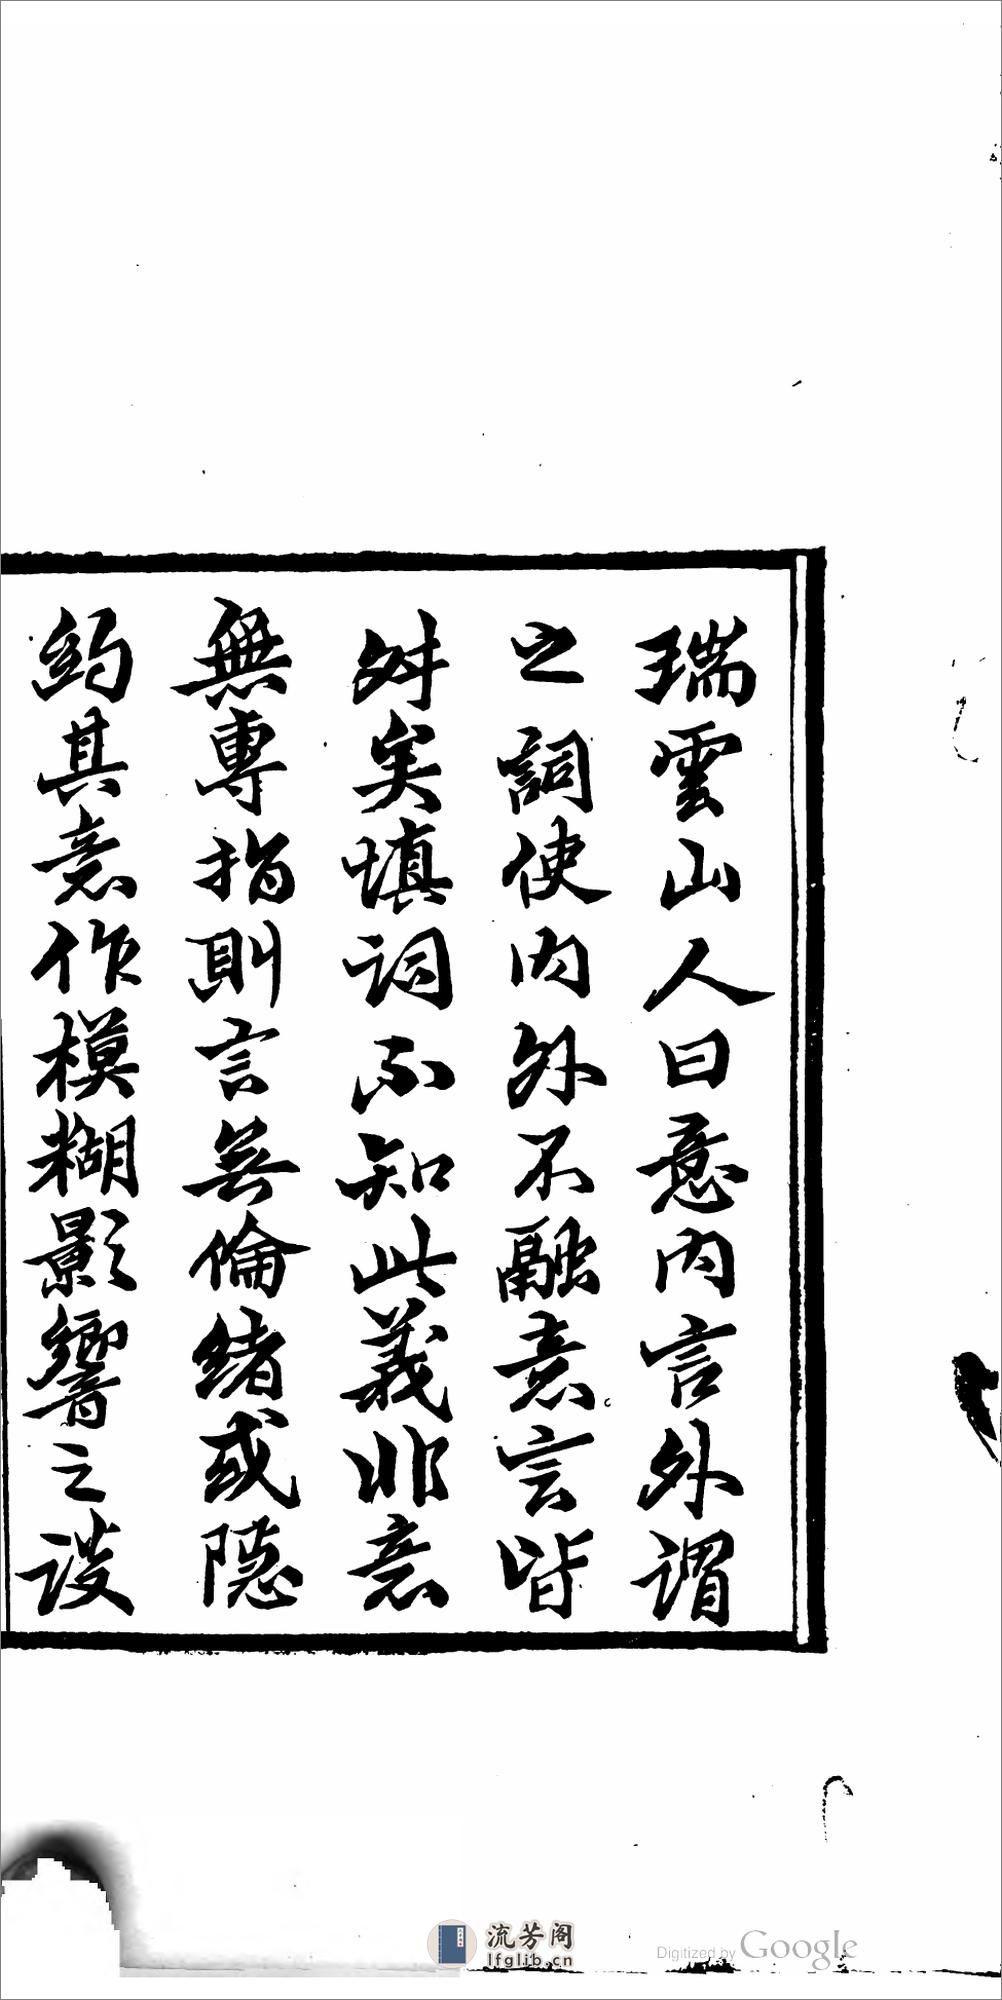 瑞雲山人曰意內言外謂
之詞使內外不融意言皆
舛矣填詞不知此義非意
無專指則言無倫緒或隱
約其意作模糊影響之談
流芳阁
lfglib.cn
Digitized by Google